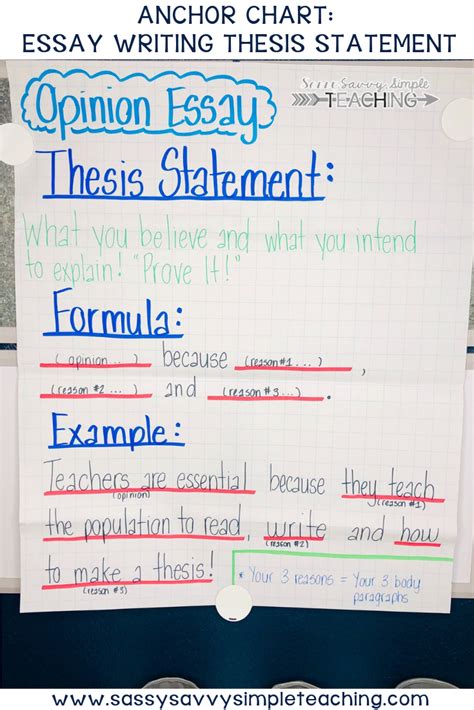 ANCHOR CHART:
ESSAY WRITING THESIS STATEMENT
Savvy, Simple
TEACHING
Opinion Essay
Thesis Statement:
What you believe and what you intend
to explain! "Prove It!"
Formula:
(opinion...) because (reason #1...),
(reason #2...) and (reason #3...).
Example:
Teachers are essential because they teach
(opinion) (reason #1)
the population to read, write and how
(reason #2)
to make a thesis!
(reason #3)
* Your 3 reasons = Your 3 body
paragraphs
www.sassysavvysimpleteaching.com